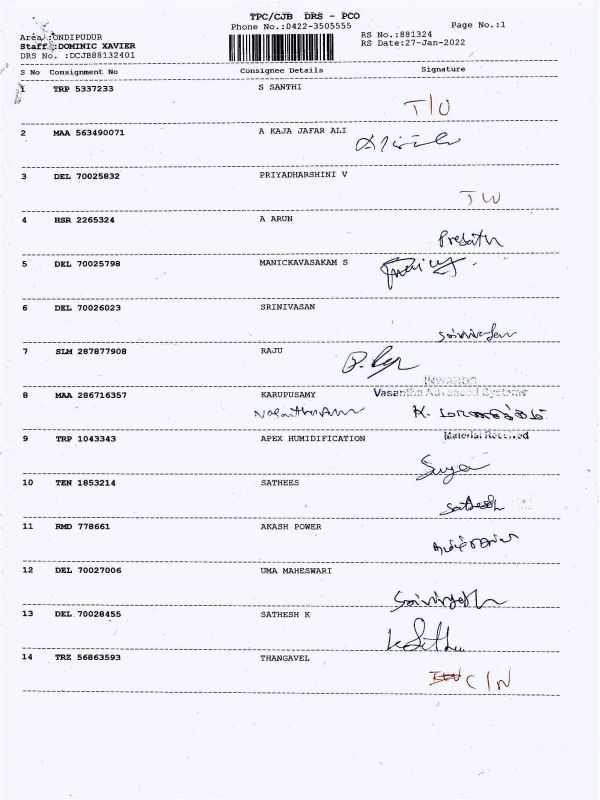 TPC/CJB DRS - PCO
Phone No.:0422-3505555
Page No.:1
Area :ONDIPUDUR
RS No.:881324
Staff :DOMINIC XAVIER
RS Date:27-Jan-2022
DRS No. :DCJB88132401
S No Consignment No Consignee Details Signature
1 TRP 5337233 S SANTHI
T/O
2 MAA 563490071 A KAJA JAFAR ALI
3 DEL 70025832 PRIYADHARSHINI V
IW
4 HSR 2265324 A ARUN
Prasath
5 DEL 70025798 MANICKAVASAKAM S
6 DEL 70026023 SRINIVASAN
7 SLM 287877908 RAJU
8 MAA 286716357 KARUPUSAMY
Vasantha Advanced Systems
K.
9 TRP 1043343 APEX HUMIDIFICATION
Material Received
Surya
10 TEN 1853214 SATHEES
Sathesh
11 RMD 778661 AKASH POWER
12 DEL 70027006 UMA MAHESWARI
13 DEL 70028455 SATHESH K
14 TRZ 56863593 THANGAVEL
C/N